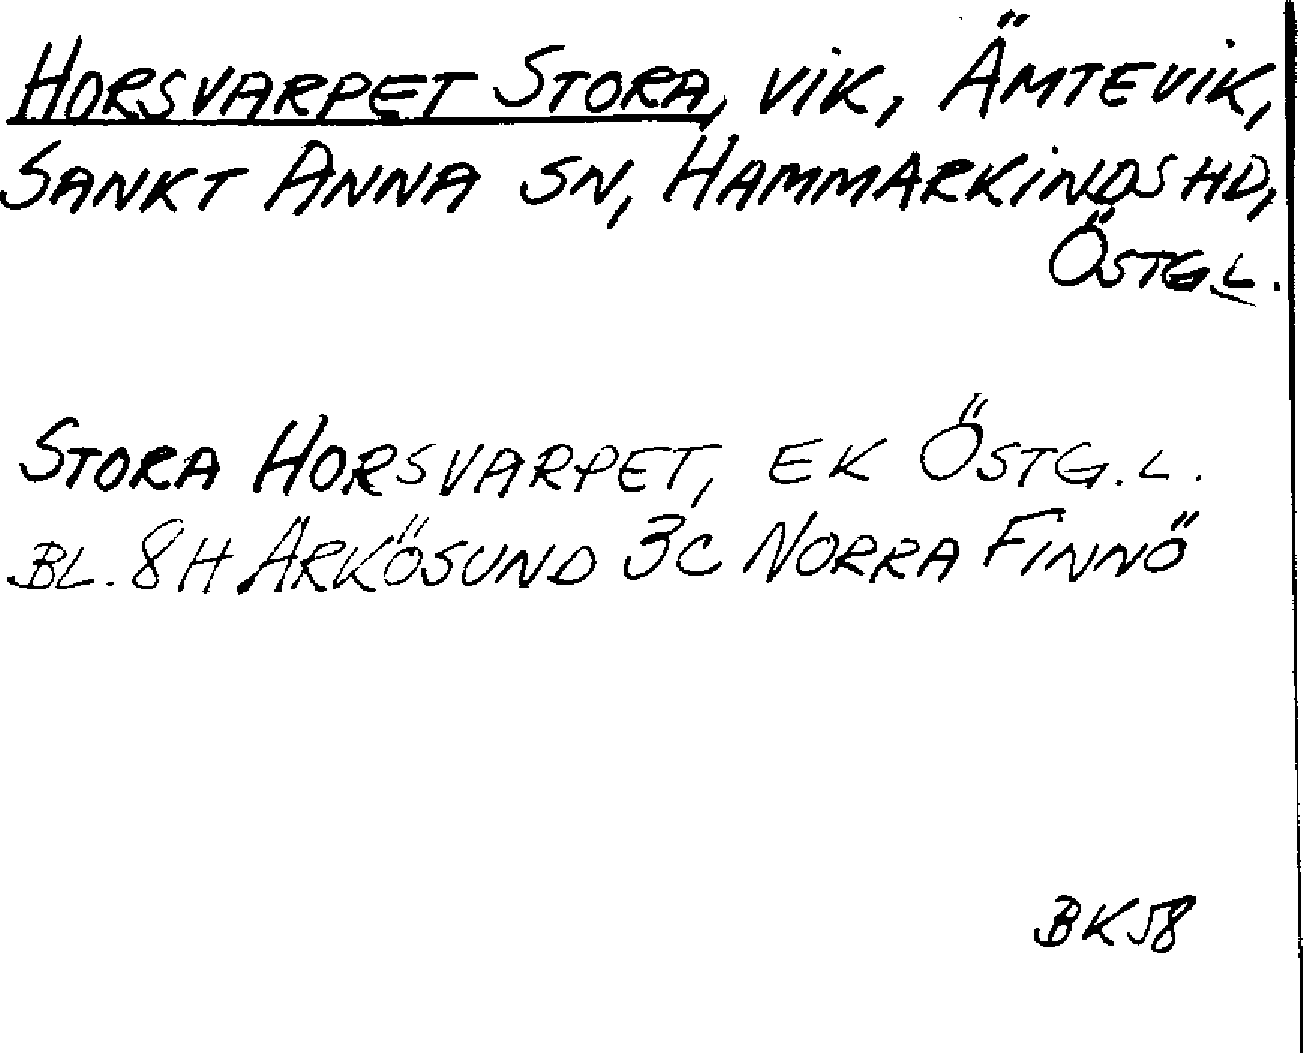 HORSVARPET STORA, VIK, ÄMTEVIK,
SANKT ANNA SN, HAMMARKINDS HD,
ÖSTG.L.
STORA HORSVARPET, EK ÖSTG.L.
BL. 8H ARKÖSUND 3C NORRA FINNÖ
BK58